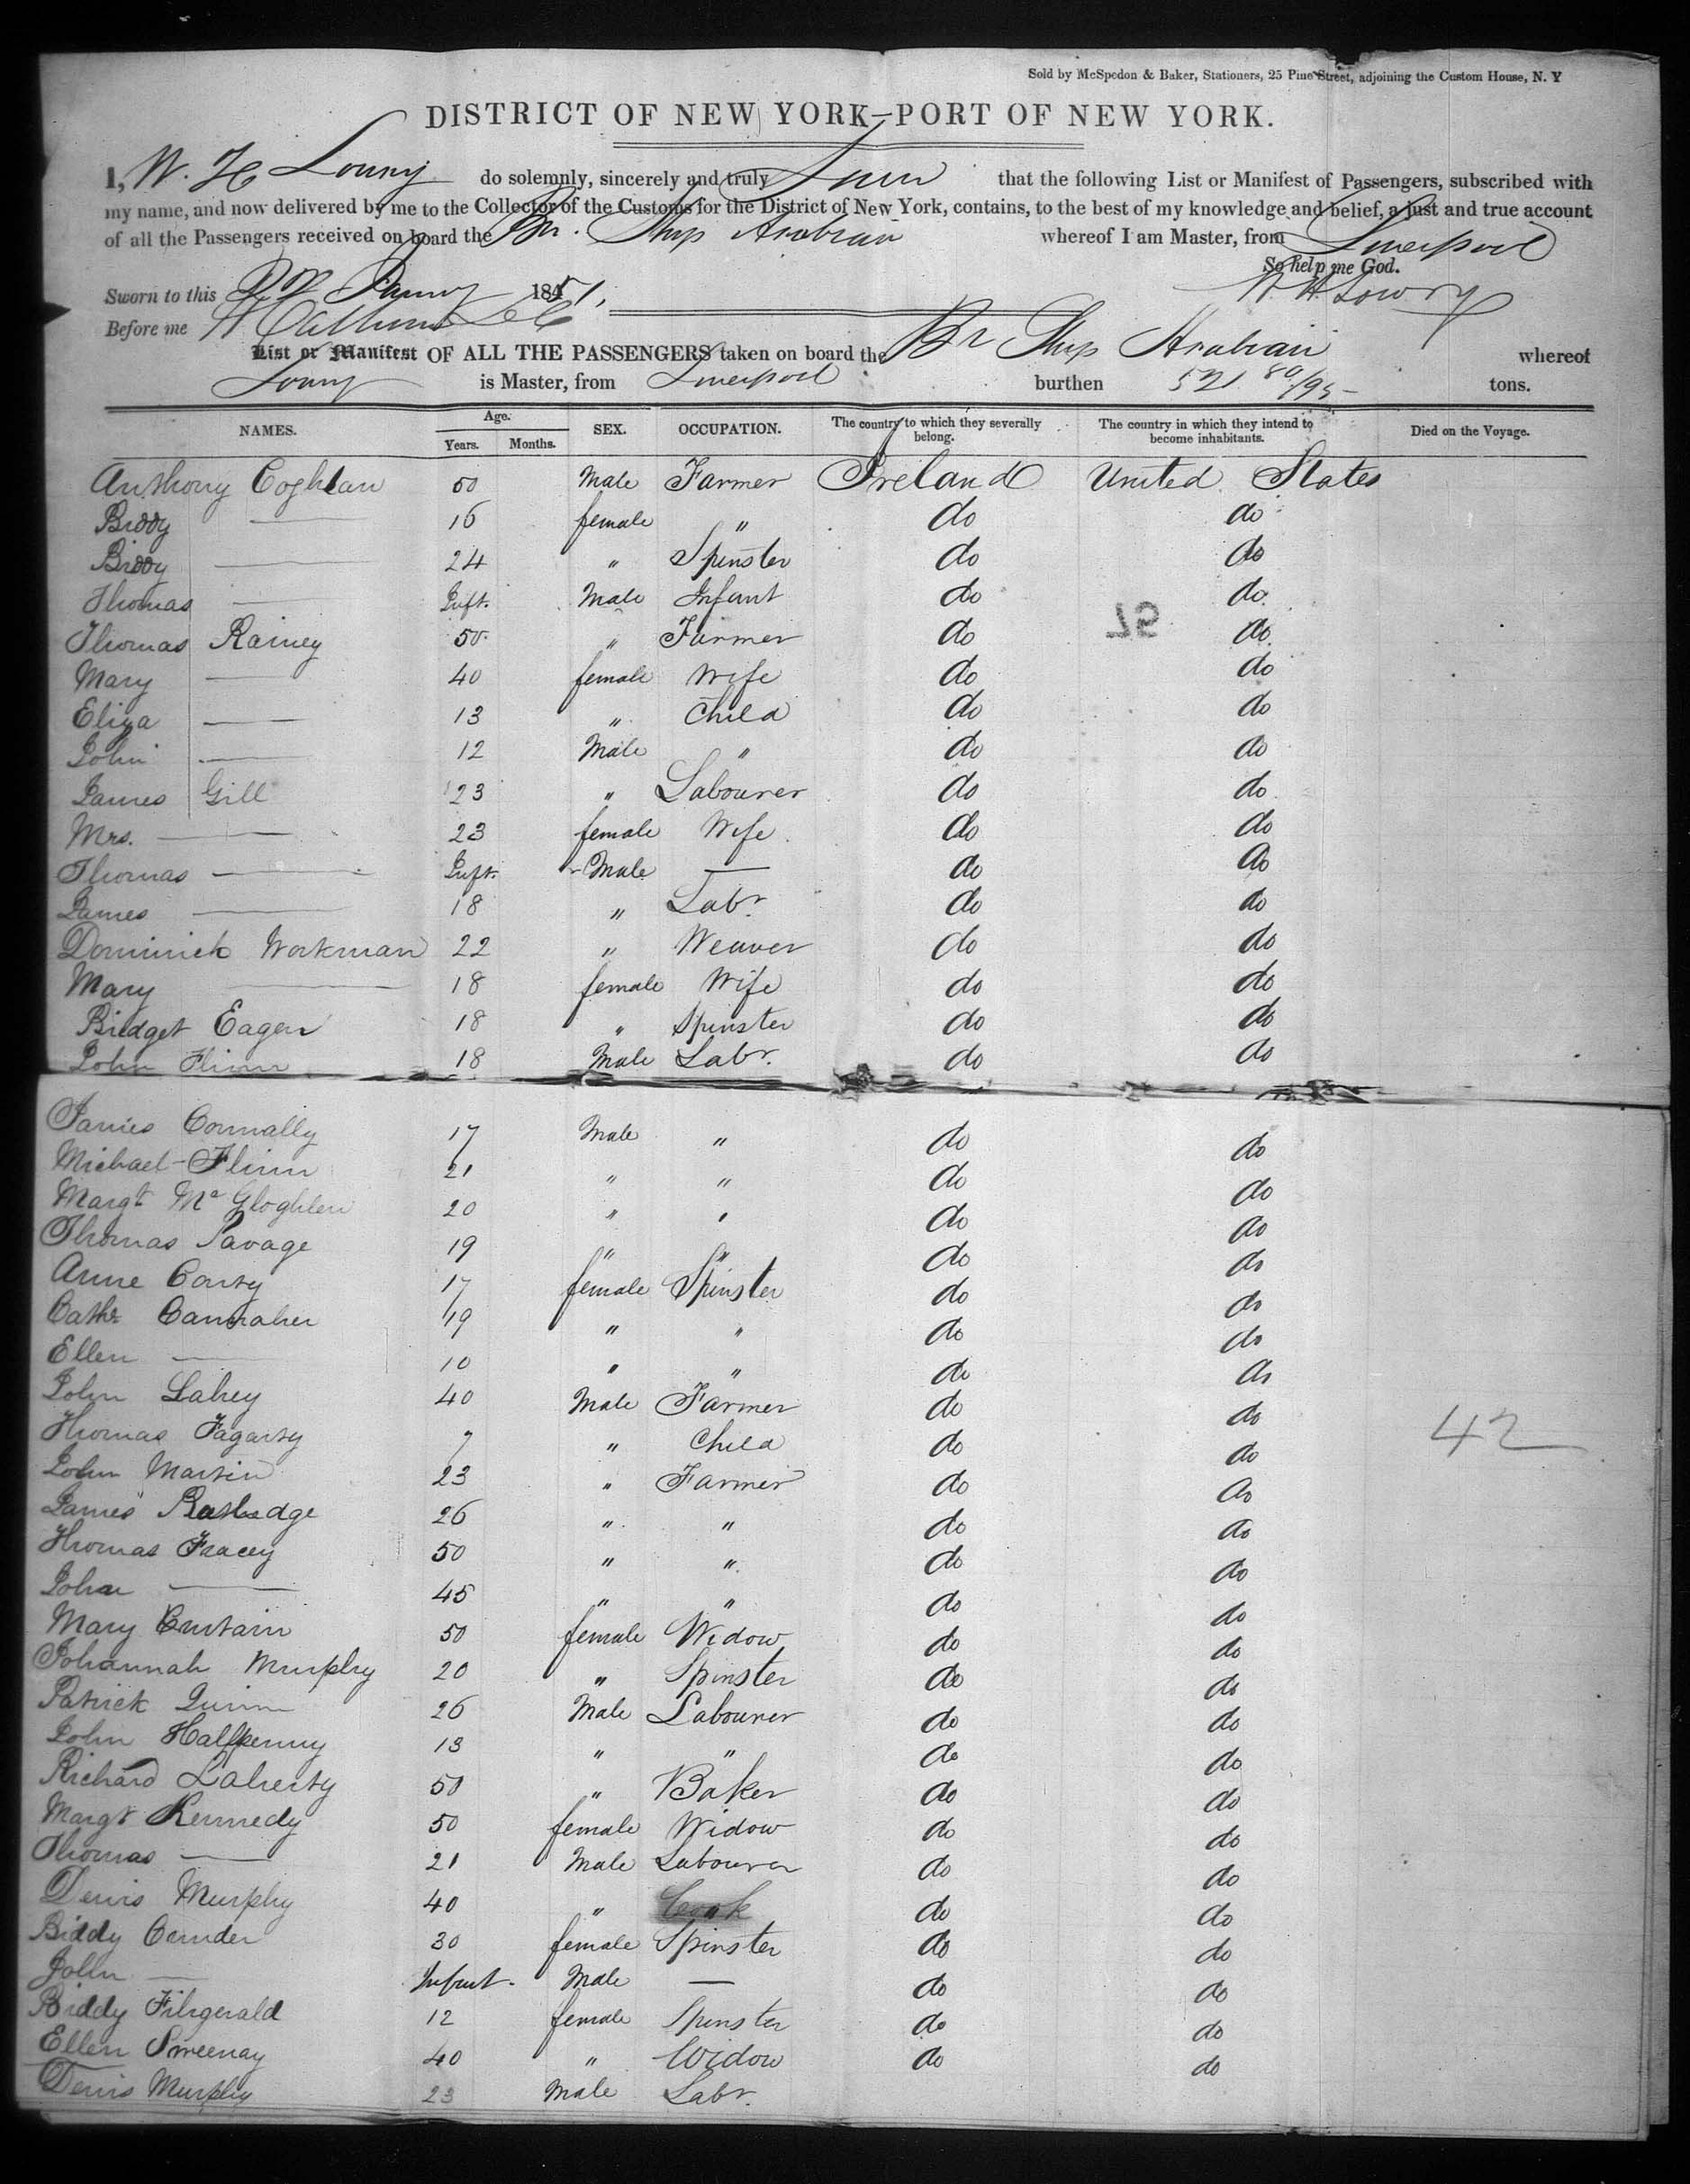 Sold by McSpedon & Baker, Stationers, 25 Pine Street, adjoining the Custom House, N. Y
DISTRICT OF NEW YORK—PORT OF NEW YORK.
I, W. H Lowry do solemnly, sincerely and truly Swear that the following List or Manifest of Passengers, subscribed with
my name, and now delivered by me to the Collector of the Customs for the District of New York, contains, to the best of my knowledge and belief, a just and true account
of all the Passengers received on board the Br. Ship Arabian whereof I am Master, from Liverpool
So help me God.
Sworn to this 1851. W. H. Lowry
Before me
List or Manifest OF ALL THE PASSENGERS taken on board the Br Ship Arabian whereof
Lowry is Master, from Liverpool burthen 521 80/95 tons.
NAMES. Age. Years. Months. SEX. OCCUPATION. The country to which they severally belong. The country in which they intend to become inhabitants. Died on the Voyage.
Anthony Coghlan 50 Male Farmer Ireland United States
Biddy — 16 female " do do
Biddy — 24 " Spinster do do
Thomas — Inft. Male Infant do do
Thomas Rainey 50 " Farmer do do
Mary — 40 female Wife do do
Eliza — 13 " Child do do
John — 12 Male " do do
James Gill 23 " Labourer do do
Mrs. — 23 female Wife do do
Thomas — Inft. Male — do do
James — 18 " Labr. do do
Dominick Workman 22 " Weaver do do
Mary — 18 female Wife do do
Bridget Eagen 18 " Spinster do do
John Flinn 18 Male Labr. do do
James Connally 17 Male " do do
Michael Flinn 21 " " do do
Margt McGloghlen 20 " " do do
Thomas Savage 19 " " do do
Anne Carty 17 female Spinster do do
Cathe Cannaher 19 " " do do
Ellen — 10 " " do do
John Lahey 40 Male Farmer do do
Thomas Fagarty 7 " Child do do
42
John Martin 23 " Farmer do do
James Rutledge 26 " " do do
Thomas Tracey 50 " " do do
John — 45 " " do do
Mary Curtain 50 female Widow do do
Johannah Murphy 20 " Spinster do do
Patrick Quinn 26 Male Labourer do do
John Halfpenny 13 " " do do
Richard Laherty 50 " Baker do do
Margt Kennedy 50 female Widow do do
Thomas — 21 Male Labourer do do
Denis Murphy 40 " do do
Biddy 30 female Spinster do do
John — Infant. Male — do do
Biddy Fitzgerald 12 female Spinster do do
Ellen Sweenay 40 " Widow do do
Denis Murphy 23 Male Labr.